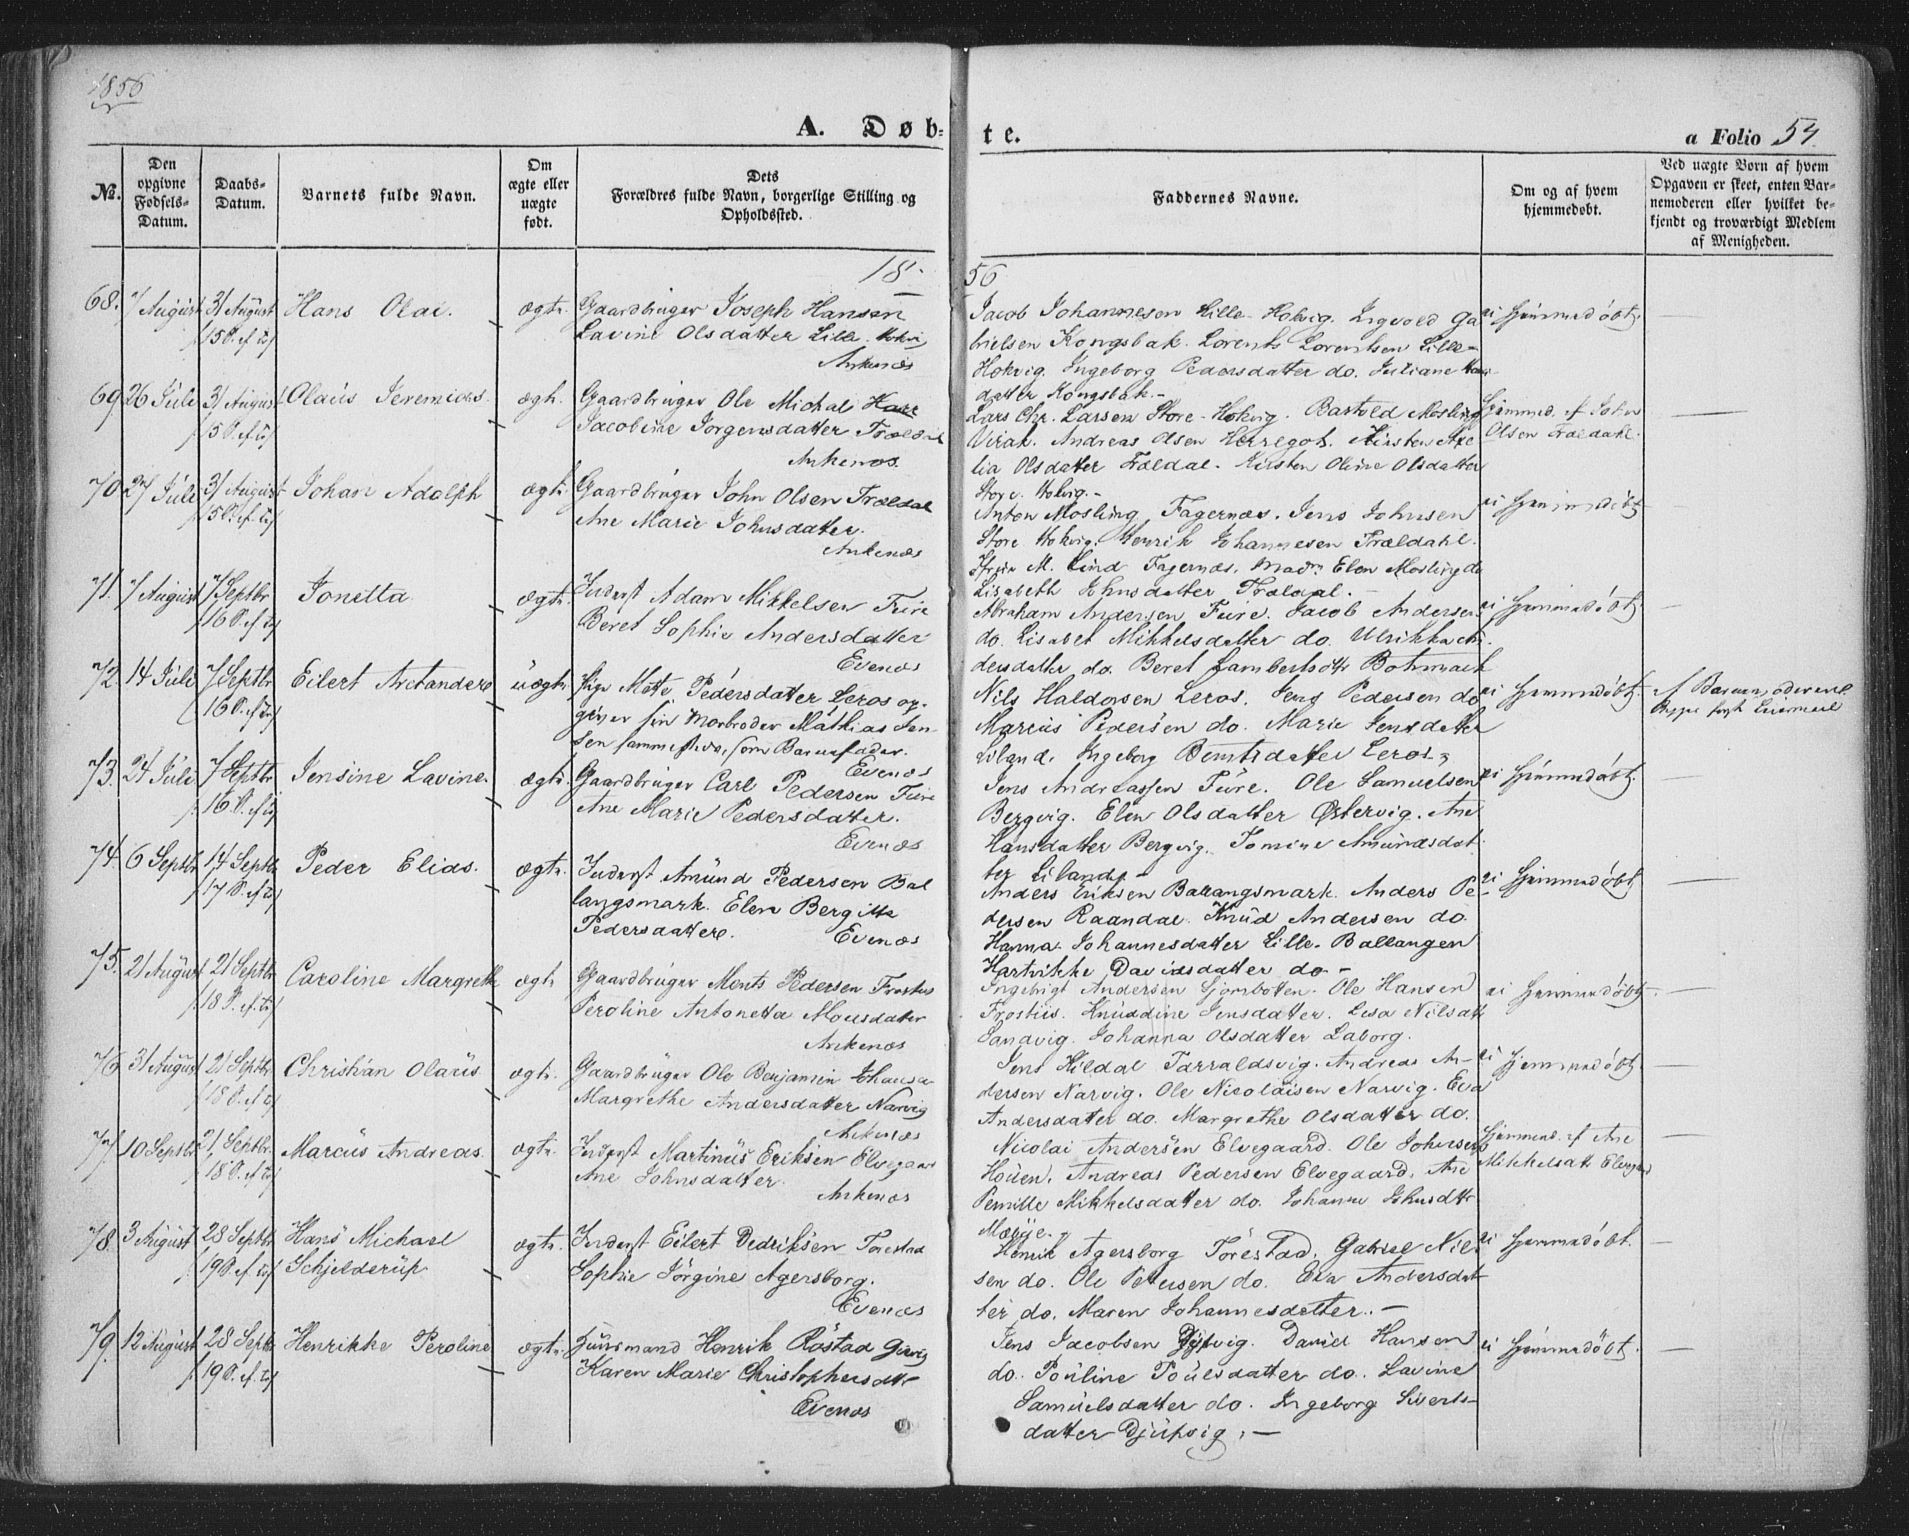 1856
A. Døb-
te.
a Folio 54.
No.
Den opgivne Fødsels-Datum.
Daabs-Datum.
Barnets fulde Navn.
Om ægte eller uægte født.
Dets Forældres fulde Navn, borgerlige Stilling og Opholdssted.
Faddernes Navne.
Om og af hvem hjemmedøbt.
Ved uægte Børn af hvem Opgaven er skeet, enten Barnemoderen eller hvilket bekjendt og troværdigt Medlem af Menigheden.
18
56
68. 7 August 31 August Hans Olai. ægte. Gaardbruger Joseph Hansen
15 S. ef. tr. Lavine Olsdatter Lille Hokvig
Ankenæs
Jacob Johannesen Lille-Hokvig. Ingvold Ga-
brielsen Kongsbak. Lorents Lorentsen Lille-
Hokvig. Ingeborg Pedersdatter do. Juliane Hans
datter Kongsbak.-
ei hjemmedøbt.
69 26 Juli 31 August Olaus Jeremias. ægte. Gaardbruger Ole Michal
15 S. ef. tr. Jacobine Jørgensdatter Trældal
Ankenæs.
Lars Chr. Larsen Store-Hokvig. Bartold Mosling
Virak. Andreas Olsen Herregot. Kirsten
lia Olsdatter Trældal. Kirsten Oline Olsdatter
Store Hokvig.-
hjemmed. af John
Olsen Trældahl.
70 27 Juli 31 August Johan Adolph ægte. Gaardbruger John Olsen Trældal
15 S. ef. tr. Ane Marie Johnsdatter.
Ankenæs
Anton Mosling Fagernæs. Jens Johnsen
Store Hokvig. Henrik Johannesen Trældahl.
M. Lind Fagernæs. Mad. Elen Mosling do
Lisabeth Johnsdatter Trældal.-
ei hjemmedøbt
71. 7 August 7 Septbr Jonetta ægte. Inderst Adam Mikkelsen Fure
16 S. ef. tr. Beret Sophie Andersdatter
Evenæs
Abraham Andersen Fure. Jacob Andersen
do. Lisabet Mikkelsdatter do. Ulrikka An-
dersdatter do. Beret Lambertsdtr Botnmark
ei hjemmedøbt.
72. 14 Juli 7 Septbr Eilert Arctander uægte. Pige Mette Pedersdatter Leros op-
16 S. ef. tr. giver sin Morbroder Mathias Jen-
sen sammesteds, som Barnefader.
Evenæs
Nils Haldorsen Leros. Jens Pedersen do
Marcus Pedersen do. Marie Jensdatter
Liland. Ingeborg Berntsdatter Leros.-
ei hjemmedøbt. af Barnemoderen
73. 24 Juli 7 Septbr Jensine Lavine. ægte. Gaardbruger Carl Pedersen Fure
16 S. ef. tr. Ane Marie Pedersdatter.
Evenæs
Jens Andreassen Fure. Ole Samuelsen
Bergvig. Elen Olsdatter Østervig. Ane
Hansdatter Bergvig. Tomine Amundsdat-
ter Liland.-
ei hjemmedøbt.
74. 6 Septbr 14 Septbr Peder Elias. ægte. Inderst Amund Pedersen Bal
17 S. ef. tr. langsmark. Elen Bergitta
Pedersdatter. Evenæs
Anders Eriksen Ballangsmark. Anders Pe-
dersen Raandal. Knud Andersen do.
Hanna Johannesdatter Lille-Ballangen
Hartvikke Davidsdatter do-
ei hjemmedøbt
75. 21 August 21 Septbr Caroline Margrethe ægte. Gaardbruger Ments Pedersen Frostus
18 S. ef. tr. Peroline Antonetta Monsdatter
Ankenæs
Ingebrigt Andersen Sjombotten. Ole Hansen
Frostiis. Knuddine Jensdatter. Lesa Nilsdtr
Sandvig. Johanna Olsdatter Laborg.
ei hjemmedøbt
76 31 August 21 Septbr Christian Olaus. ægte. Gaardbruger Ole Benjamin Johansen
18 S. ef. tr. Margrethe Andersdatter Narvig
Ankenæs
Jens Hildal Tarraldsvig. Andreas An-
dersen Narvig. Ole Nicolaisen Narvig. Eva
Andersdatter do. Margrethe Olsdatter do.
ei hjemmedøbt
77. 10 Septbr. 21 Septbr. Marcus Andreas. ægte. Inderst Martinus Eriksen Elvegaard
18 S. ef. tr. Ane Johnsdatter
Ankenæs
Nicolai Andersen Elvegaard. Ole Johnsen
Houen. Andreas Pedersen Elvegaard. Ane
Pernille Mikkelsdatter do. Johanna Johnsdtr
hjemmed. af Ane
Mikkelsdtr Elvegaard
78. 3 August 28 Septbr Hans Michael ægte. Inderst Eilert Dedriksen Forestad
19 S. ef. tr. Schjelderup Sophie Jørgine Agersborg.
Evenæs
Henrik Agersborg Forestad. Gabriel Nil-
sen do. Ole Petersen do. Eva Andersdat-
ter do. Maren Johannesdatter.-
ei hjemmedøbt.
79. 12 August 28 Septbr Henrikke Peroline ægte. Huusmand Henrik Røstad
19 S. ef. tr. Karen Marie Christophersdtr
Evenæs
Jens Jacobsen Djupvig. Daniel Hansen
do. Pouline Poulsdatter do. Lavine
Samuelsdatter do. Ingeborg Siverts-
datter Djupvig.-
ei hjemmedøbt.